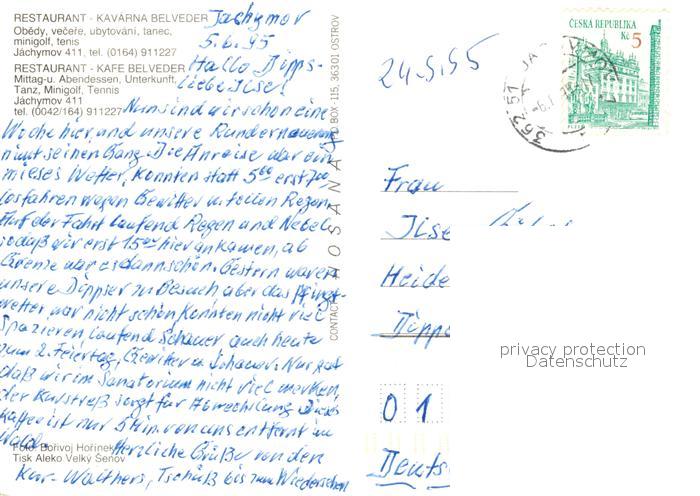 RESTAURANT - KAVÁRNA BELVEDER
Obědy, večeře, ubytování, tanec,
minigolf, tenis
Jáchymov 411, tel. (0164) 911227
RESTAURANT - KAFE BELVEDER
Mittag-u. Abendessen, Unterkunft,
Tanz, Minigolf, Tennis
Jáchymov 411
tel. (0042/164) 911227
Jachymov
5.6.95
Hallo Dipps-
liebe Ilse!
Nun sind wir schon eine
Woche hier, und unsere
nimt seinen Gang. Die Anreise war ein
mieses Wetter, konnten statt 5⁰⁰ erst 7⁰⁰
losfahren wegen Gewitter u. tollen Regen.
Auf der Fahrt laufend Regen und Nebel
sodaß wir erst 15⁰⁰ hier ankamen, ab
Grenze war es dann schön. Gestern waren
unsere Dippser zu Besuch, aber das Pfingst-
wetter war nicht schön, konnten nicht viel
Spazieren, laufend Schauer auch heute
zum 2. Feiertag, Gewitter u. Schauer. Nur gut
daß wir im Sanatorium nicht viel merken,
der Kurstreß sorgt für Abwechslung. Dieses
Kaffee ist nur 5 Min. von uns entfernt im
Wald. Herzliche Grüße von den
Kur-Walthers, Tschüß bis zum Wiedersehen
Foto: Bořivoj Hořínek
Tisk Aleko Velký Šenov
OSANA
BOX 115, 36301 OSTROV
24.5.95
ČESKÁ REPUBLIKA
Kč 5
PLZEŇ
362 51
Frau
Ilse
Heide
Dippo
01
Deuts
privacy protection
Datenschutz